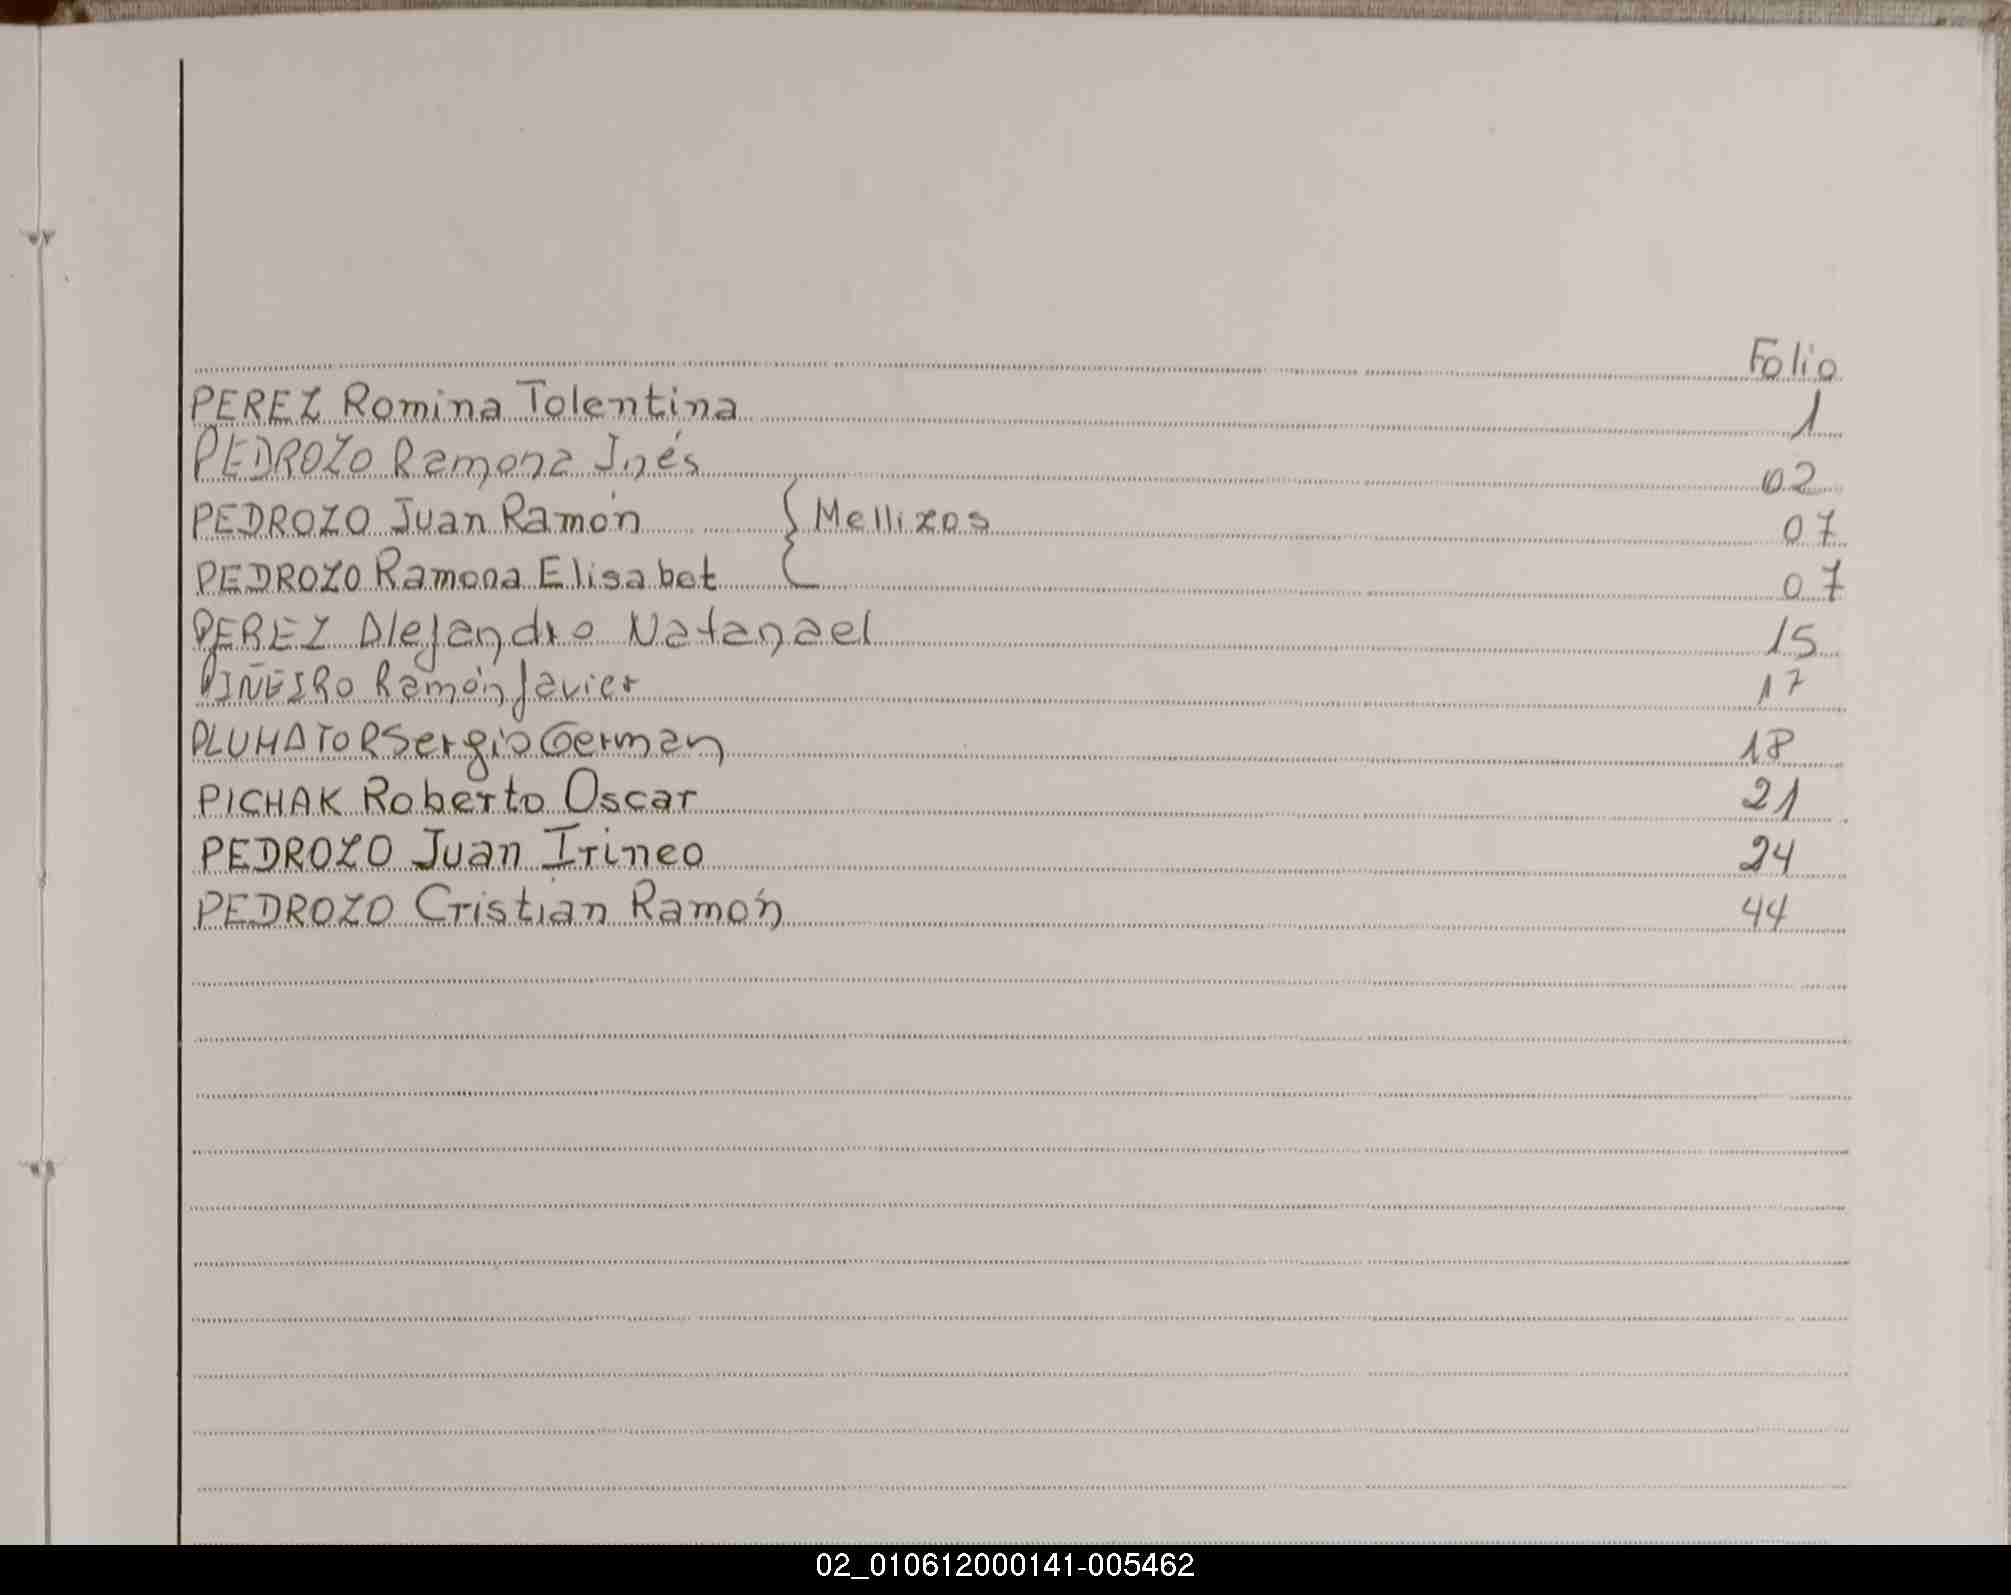 Folio
PEREZ Romina Tolentina 1
PEDROZO Ramona Inés 02
PEDROZO Juan Ramón { Mellizos 07
PEDROZO Ramona Elisabet 07
PEREZ Alejandro Natanael 15
PIÑEIRO Ramón Javier 17
PLUHATOR Sergio German 18
PICHAK Roberto Oscar 21
PEDROZO Juan Irineo 24
PEDROZO Cristian Ramón 44
02_010612000141-005462